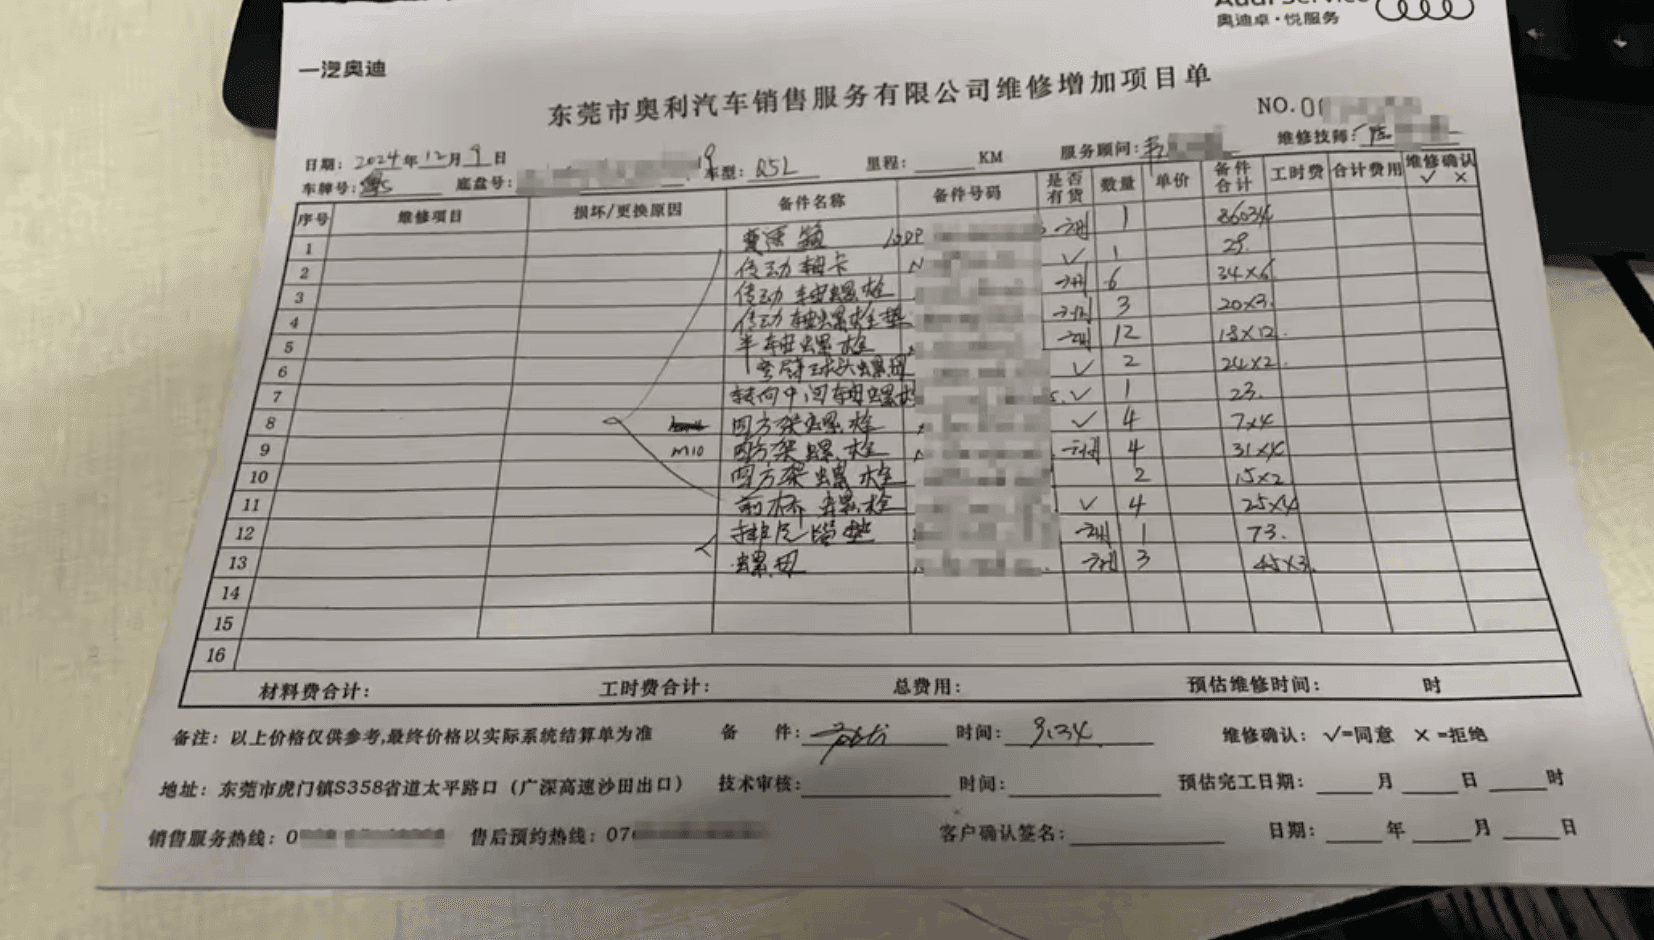 Audi Service
奥迪卓·悦服务
一汽奥迪
东莞市奥利汽车销售服务有限公司维修增加项目单
NO.0
日期: 2024年12月9日
车牌号: 粤S 底盘号: 19 车型: Q5L 里程: KM 服务顾问: 韦 维修技师:
序号 维修项目 损坏/更换原因 备件名称 备件号码 是否有货 数量 单价 备件合计 工时费 合计费用 维修确认 ✓ ×
1 变速箱 1 86034
2 传动轴卡 N ✓ 1 29.
3 传动轴螺栓 6 34×6
4 传动轴螺栓垫 3 20×3.
5 半轴螺栓 12 18×12.
6 弯臂球头螺母 ✓ 2 24×2.
7 转向中间轴螺栓 ✓ 1 23.
8 四方架螺栓 ✓ 4 7×4
9 M10 四方架螺栓 4 31×4
10 四方架螺栓 2 15×2
11 前桥螺栓 ✓ 4 25×4
12 排气管垫 1 73.
13 螺母 3 45×3.
14
15
16
材料费合计: 工时费合计: 总费用: 预估维修时间: 时
备注: 以上价格仅供参考,最终价格以实际系统结算单为准 备 件: 时间: 9.34 维修确认: ✓=同意 ×=拒绝
地址: 东莞市虎门镇S358省道太平路口(广深高速沙田出口) 技术审核: 时间: 预估完工日期: 月 日 时
销售服务热线: 0 售后预约热线: 07 客户确认签名: 日期: 年 月 日